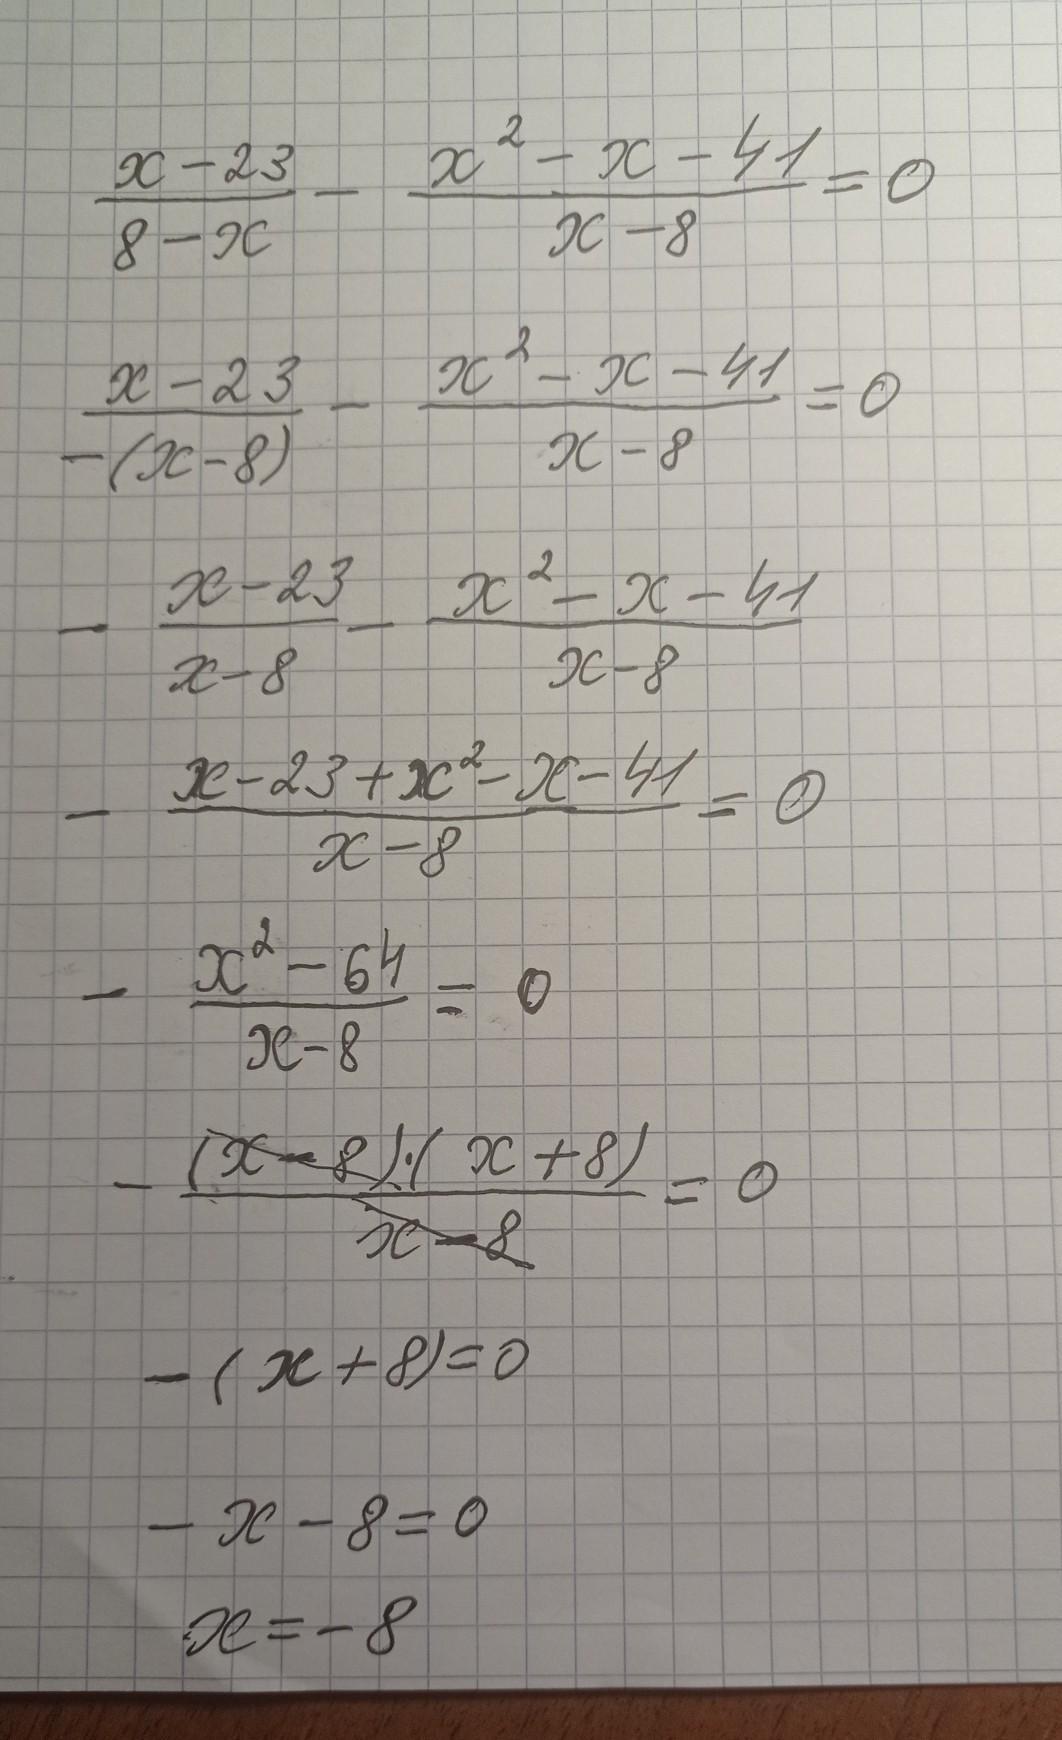 (x-23)/(8-x) - (x² - x - 41)/(x-8) = 0
(x-23)/(-(x-8)) - (x² - x - 41)/(x-8) = 0
- (x-23)/(x-8) - (x² - x - 41)/(x-8)
- (x-23+x²-x-41)/(x-8) = 0
- (x²-64)/(x-8) = 0
- ((x-8)·(x+8))/(x-8) = 0
-(x+8)=0
-x-8=0
x=-8